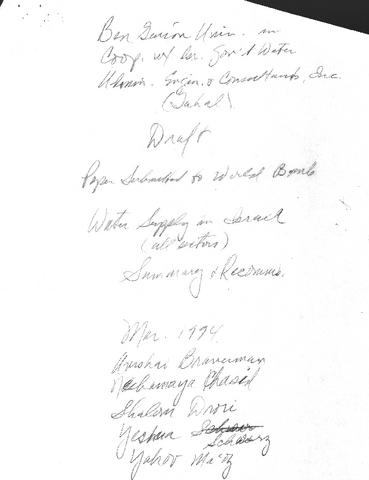 Ben Gurion Univ. in
Coop. w/ Isr. Gov't Water
Engin. & Consultants, Inc.
(Tahal)
Draft
Paper Submitted to World Bank
Water Supply in Israel
(all sectors)
Summary & Recomms.
Mar. 1994
Avishai Braverman
Nechemaya Hasid
Shalom Drori
Yeshua Schwarz
Yakov Ma'oz